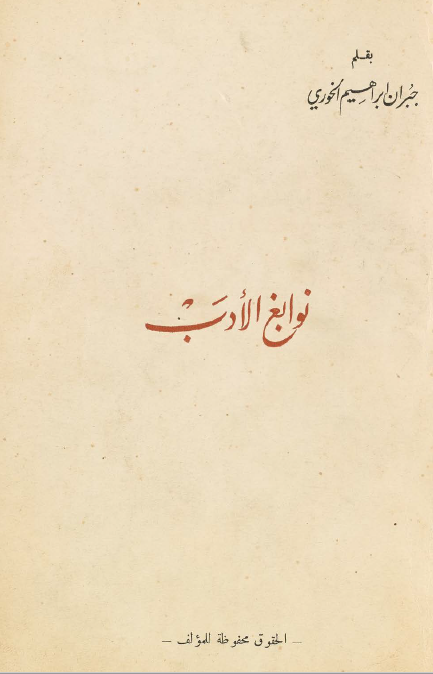 بقلم
جبران ابراهيم الخوري
نوابغ الأدب
— الحقوق محفوظة للمؤلف —